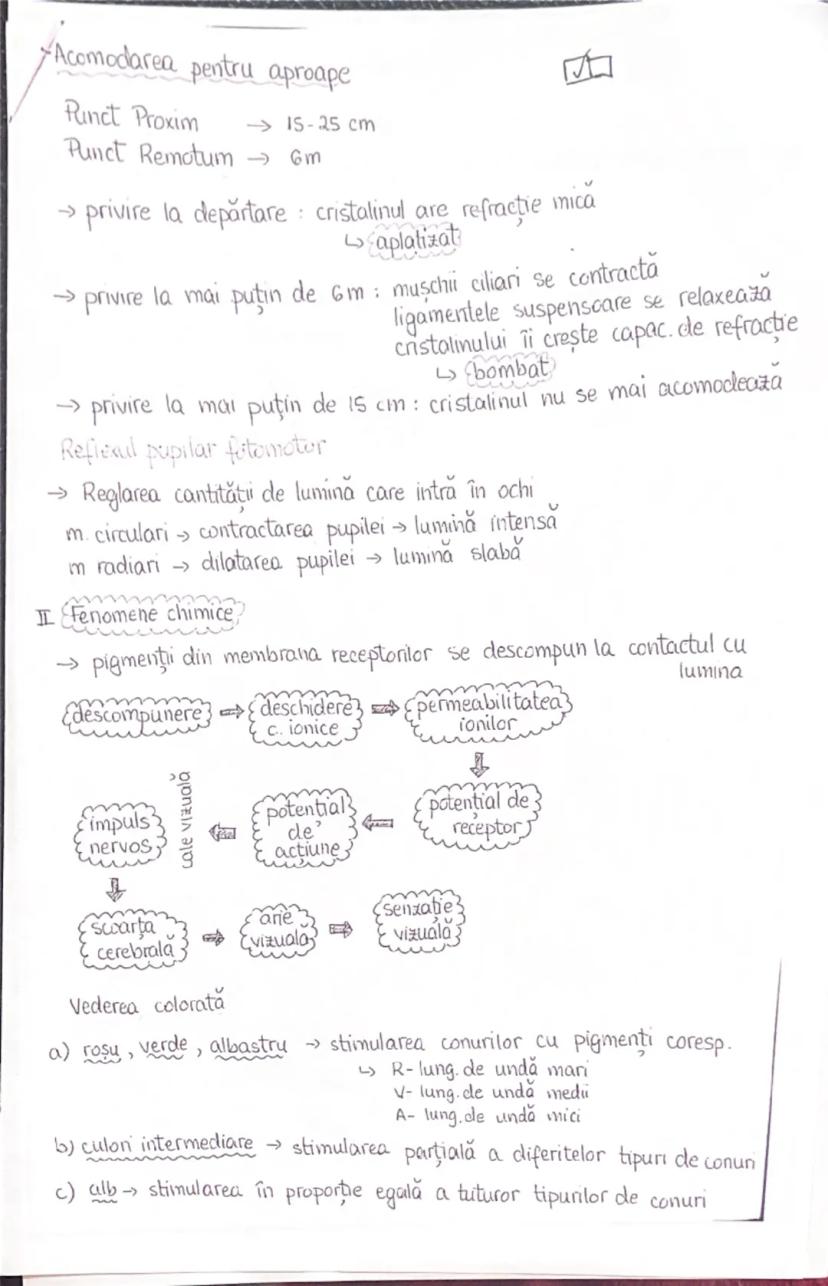 Acomodarea pentru aproape
Punct Proxim → 15-25 cm
Punct Remotum → 6m
→ privire la depărtare : cristalinul are refracție mică
↳ aplatizat
→ privire la mai puțin de 6m : mușchii ciliari se contractă
ligamentele suspensoare se relaxează
cristalinului îi crește capac. de refracție
↳ bombat
→ privire la mai puțin de 15 cm : cristalinul nu se mai acomodează
Reflexul pupilar fotomotor
→ Reglarea cantității de lumină care intră în ochi
m. circulari → contractarea pupilei → lumină intensă
m radiari → dilatarea pupilei → lumină slabă
II Fenomene chimice
→ pigmenții din membrana receptorilor se descompun la contactul cu
lumina
descompunere ⇒ deschidere ⇒ permeabilitatea
c. ionice ionilor
impuls nervos
cale vizuală
potențial de acțiune
potențial de receptor
scoarța cerebrală ⇒ arie vizuală ⇒ senzație vizuală
Vederea colorată
a) roșu, verde, albastru → stimularea conurilor cu pigmenți coresp.
↳ R- lung. de undă mari
V- lung. de undă medii
A- lung. de undă mici
b) culori intermediare → stimularea parțială a diferitelor tipuri de conuri
c) alb → stimularea în proporție egală a tuturor tipurilor de conuri